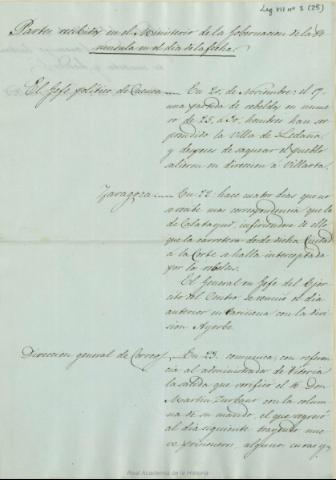 Leg VII nº 2 (25)
Partes recibidos en el Ministerio de la Gobernacion de la Pe
ninsula en el dia de la fecha.
El Jefe político de Cuenca — En 20 de Noviembre: el 17
una partida de rebeldes en nume
ro de 25 a 30 hombres han sor
prendido la Villa de Ledaña
y despues de saquear el pueblo
salieron en direccion a Villarta.
Zaragoza — En 22 hace cuatro dias que no
se recibe mas correspondencia que la
de Calatayud, infiriendose de ello
que la carretera desde dicha Ciudad
á la Corte se halla interceptada
por los rebeldes.
El General en Jefe del Ejer
cito del Centro se reunió el dia
anterior en Cariñena con la divi
sion Ayerbe.
Direccion general de Correos — En 23. comunica, con referen
cia al administrador de Vitoria
la salida que verificó el 16 Don
Martin Zurbano con la colum
na de su mando, el que regresó
al dia siguiente trayendo nue
ve prisioneros, algunos curas y
Real Academia de la Historia